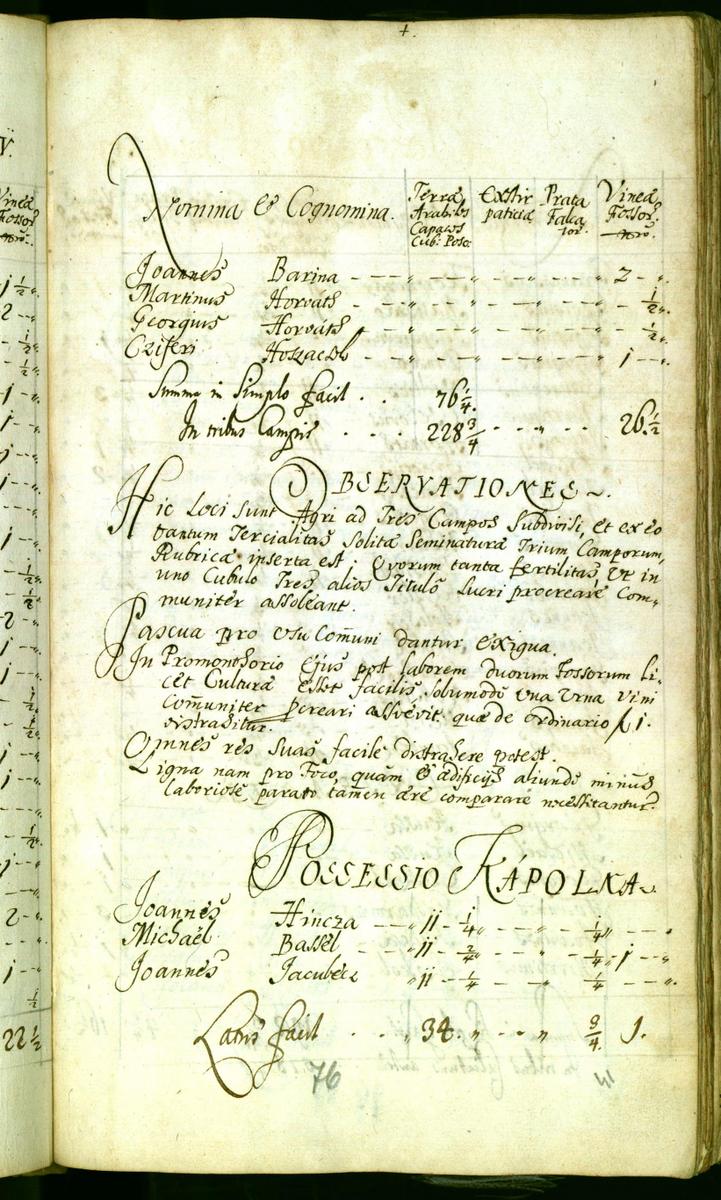 +.
Nomina & Cognomina. Terræ Arabilis Capaces Cub: Poso: Exstirpaticiæ Prata Falcator. Vineæ Fossor:
Joannes Barina - - - „ - - „ - - „ - - „ 2 - „.
Martinus Horváth - - „ - - „ - - „ - - „ - ½„.
Georgius Horváth - - „ - - „ - - „ - - „ - ½„.
Cziferi - - „ - - „ - - „ - - „ 1 - „.
Summa in Simplo facit . . 76¼.
In tribus Campis . . . 228¾ - - „ - - 26½
OBSERVATIONES.
Hic Loci sunt Agri ad Tres Campos Subdivisi, et ex eo
tantum Tercialitas Solitæ Seminaturæ Trium Camporum,
Rubricæ inserta est; Quorum tanta fertilitas, Ut in
uno Cubulo Tres alios Titulô Lucri procreare Com-
muniter assoleant.
Pascua pro Usu Com̄uni dantur exigua.
In Promonthorio ejus post laborem duorum Fossorum li-
cet Cultura esset facilis, solumodo Una Urna Vini
Com̄uniter pcreari assvevit. quæ de ordinario f 1.
distrahitur.
Omnes res suas facile distrahere potest.
Ligna nam pro Foco, quàm & ædificijs aliunde minus
laboriose, parato tamen ære comparare necessitantur.
POSSESSIO KÁPOLNA.
Joannes Hincza - - „ 11 - ¼„ - - „ - ¼„ - - .
Michaël Bassel - - „ 11 - 2/4„ - - „ - ¼„ 1 - „
Joannes Jacubecz „ 11 - ¼ - - „ - ¼ - - „.
Latus facit . . „ 34. „ . - „ 9/4. 1.
76